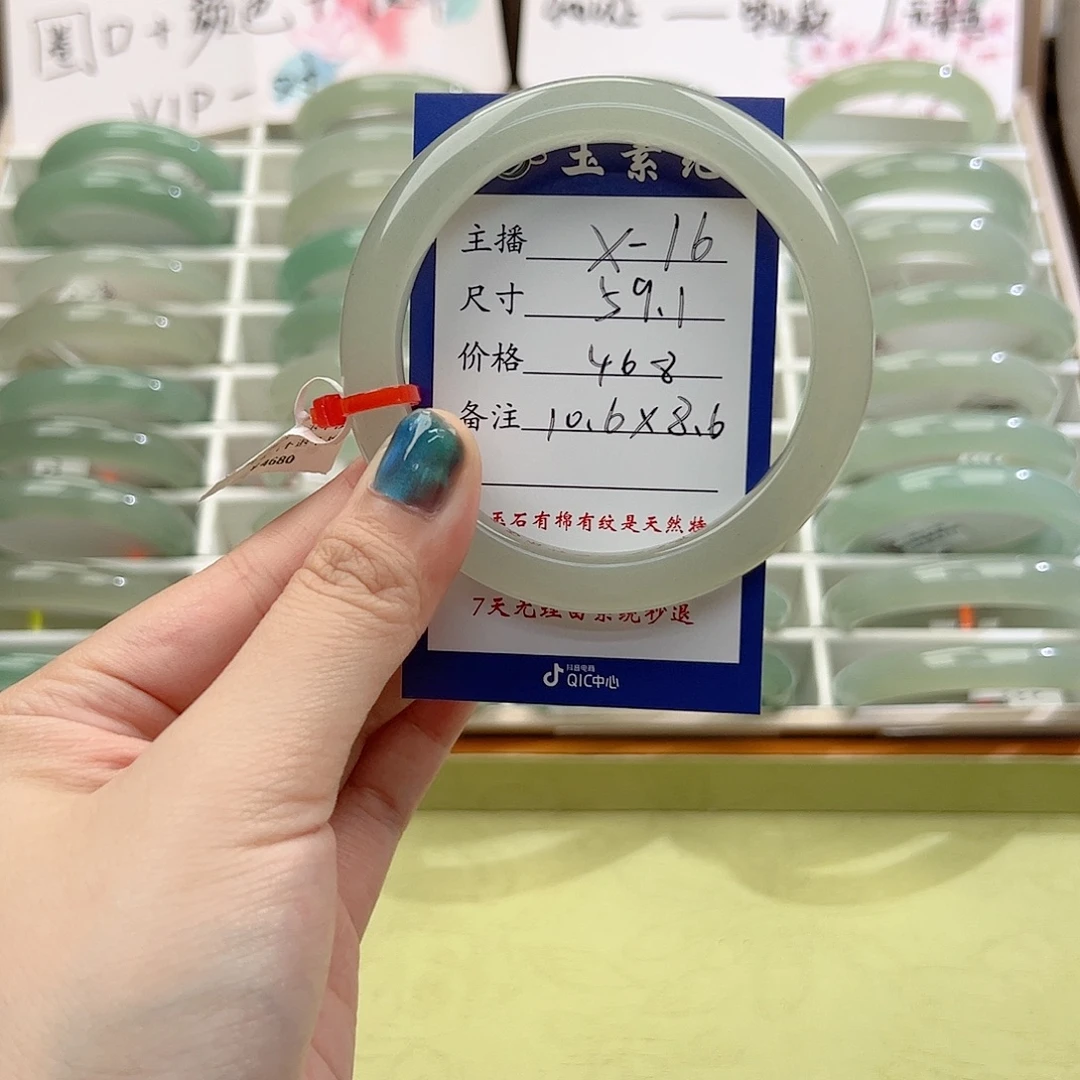 圈口+颜色+
VIP-
玉素纪
主播 X-16
尺寸 59.1
价格 468
备注 10.6X8.6
玉石有棉有纹是天然特
7天无理由系统秒退
抖音电商
QIC中心
¥4680